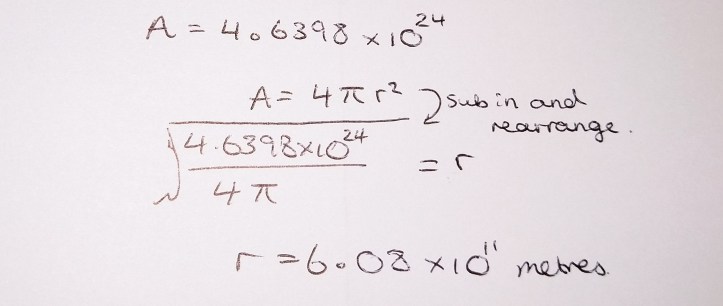 A = 4.6398 × 10²⁴
A = 4πr² sub in and rearrange.
√(4.6398×10²⁴ / 4π) = r
r = 6.08 × 10¹¹ metres.